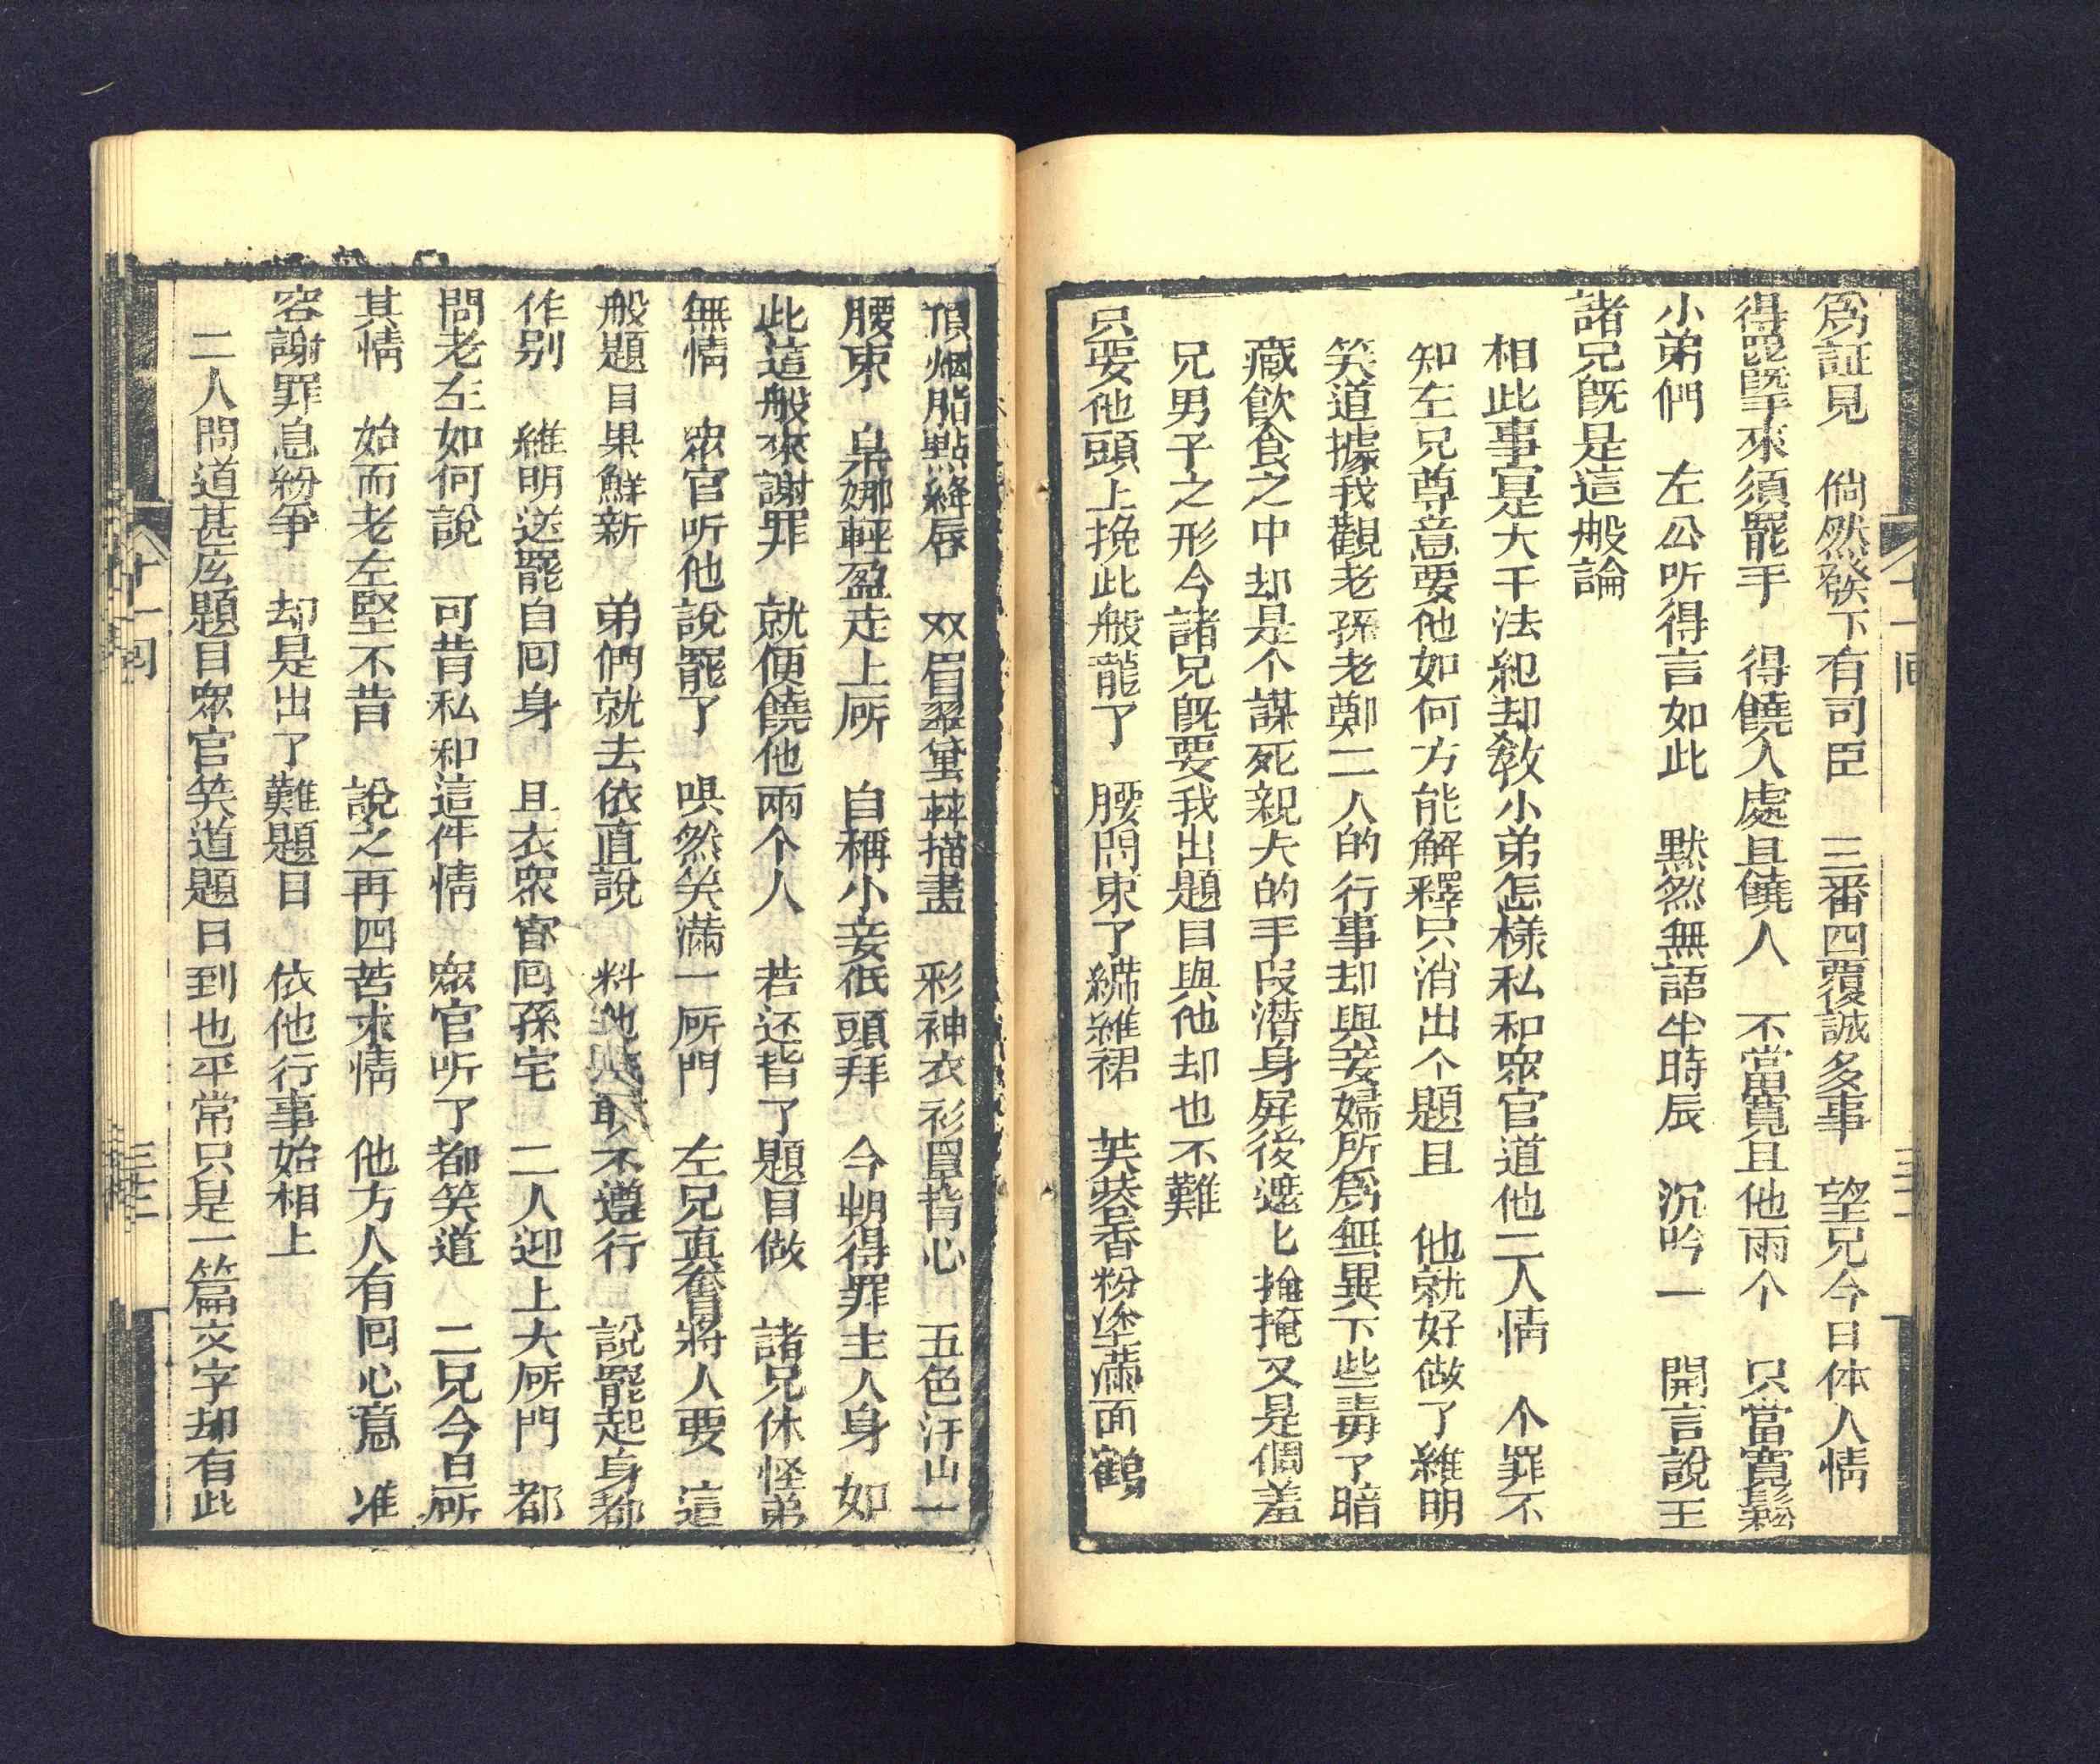 為証見　倘然發下有司臣　三番四覆誠多事　望兄今日体人情
得罷手來須罷手　得饒人處且饒人　不當寛且他兩个　只當寛鬆
小弟們　左公听得言如此　默然無語半時辰　沉吟一　開言說王
諸兄既是這般論
相此事寔是大干法紀却教小弟怎樣私和衆官道他二人情　个罪不
知左兄尊意要他如何方能解釋只消出个題且　他就好做了維明
笑道據我觀老孫老鄭二人的行事却與妾婦所為無異下些毒了暗
藏飲食之中却是个謀死親夫的手段潛身屏後遮匕掩掩又是個羞
兄男子之形今諸兄既要我出題目與他却也不難
只要他頭上挽此般龍了　腰間束了繡維裙　芙蓉香粉塗滿面鶴
頂烟脂點絳唇　双眉翠黛描畫　彩神衣衫罩背心　五色汗山一
腰束　裊娜輕盈走上廳　自稱小妾低頭拜　今朝得罪主人身　如
此這般來謝罪　就便饒他兩个人　若还皆了題目做　諸兄休怪弟
無情　衆官听他說罷了　哄然笑滿一厛門　左兄真奮將人要　這
般題目果鮮新　弟們就去依直說　料他不遵行　說罷起身都
作别　維明送罷自回身　且衣衆官回孫宅　二人迎上大厛門　都
問老左如何說　可昔私和這件情　衆官听了都笑道　二兄今日所
其情　始而老左堅不昔　說之再四苦求情　他方人有回心意　准
容謝罪息紛爭　却是出了難題日　依他行事始相上
二人問道甚庅題目衆官笑道題日到也平常只是一篇文字却有此
十一回
三十二
十一回